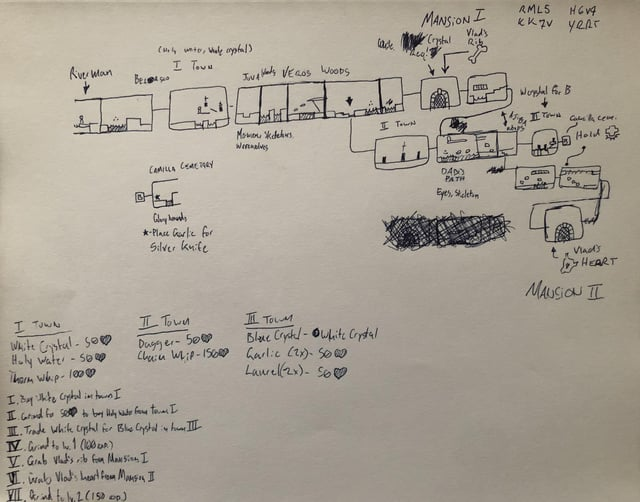 MANSION I
RML5 H6V7
KK7V YRRT
Crystal
Req.
Vlad's
Rib
(Holy water, White crystal)
I TOWN
RiverMan
VEROS WOODS
Werewolves
II TOWN
W crystal for B
III TOWN
Camilla Cem.
Hold
DABI'S
PATH
Eyes, Skeleton
CAMILLA CEMETERY
B
B
*-Place Garlic for
Silver Knife
Vlad's
HEART
MANSION II
I TOWN
White Crystal - 50
Holy Water - 50
Thorn Whip - 100
II TOWN
Dagger - 50
Chain Whip - 150
III TOWN
Blue Crystal - White Crystal
Garlic (2x) - 50
Laurel (2x) - 50
I. Buy White Crystal in town I
II. Grind for 50 to buy Holy Water from town I
III. Trade White Crystal for Blue Crystal in town III
IV. Grind to lv. 1 (100 exp.)
V. Grab Vlad's rib from Mansion I
VI. Grab Vlad's heart from Mansion II
VII. Grind to lv. 2 (150 exp.)